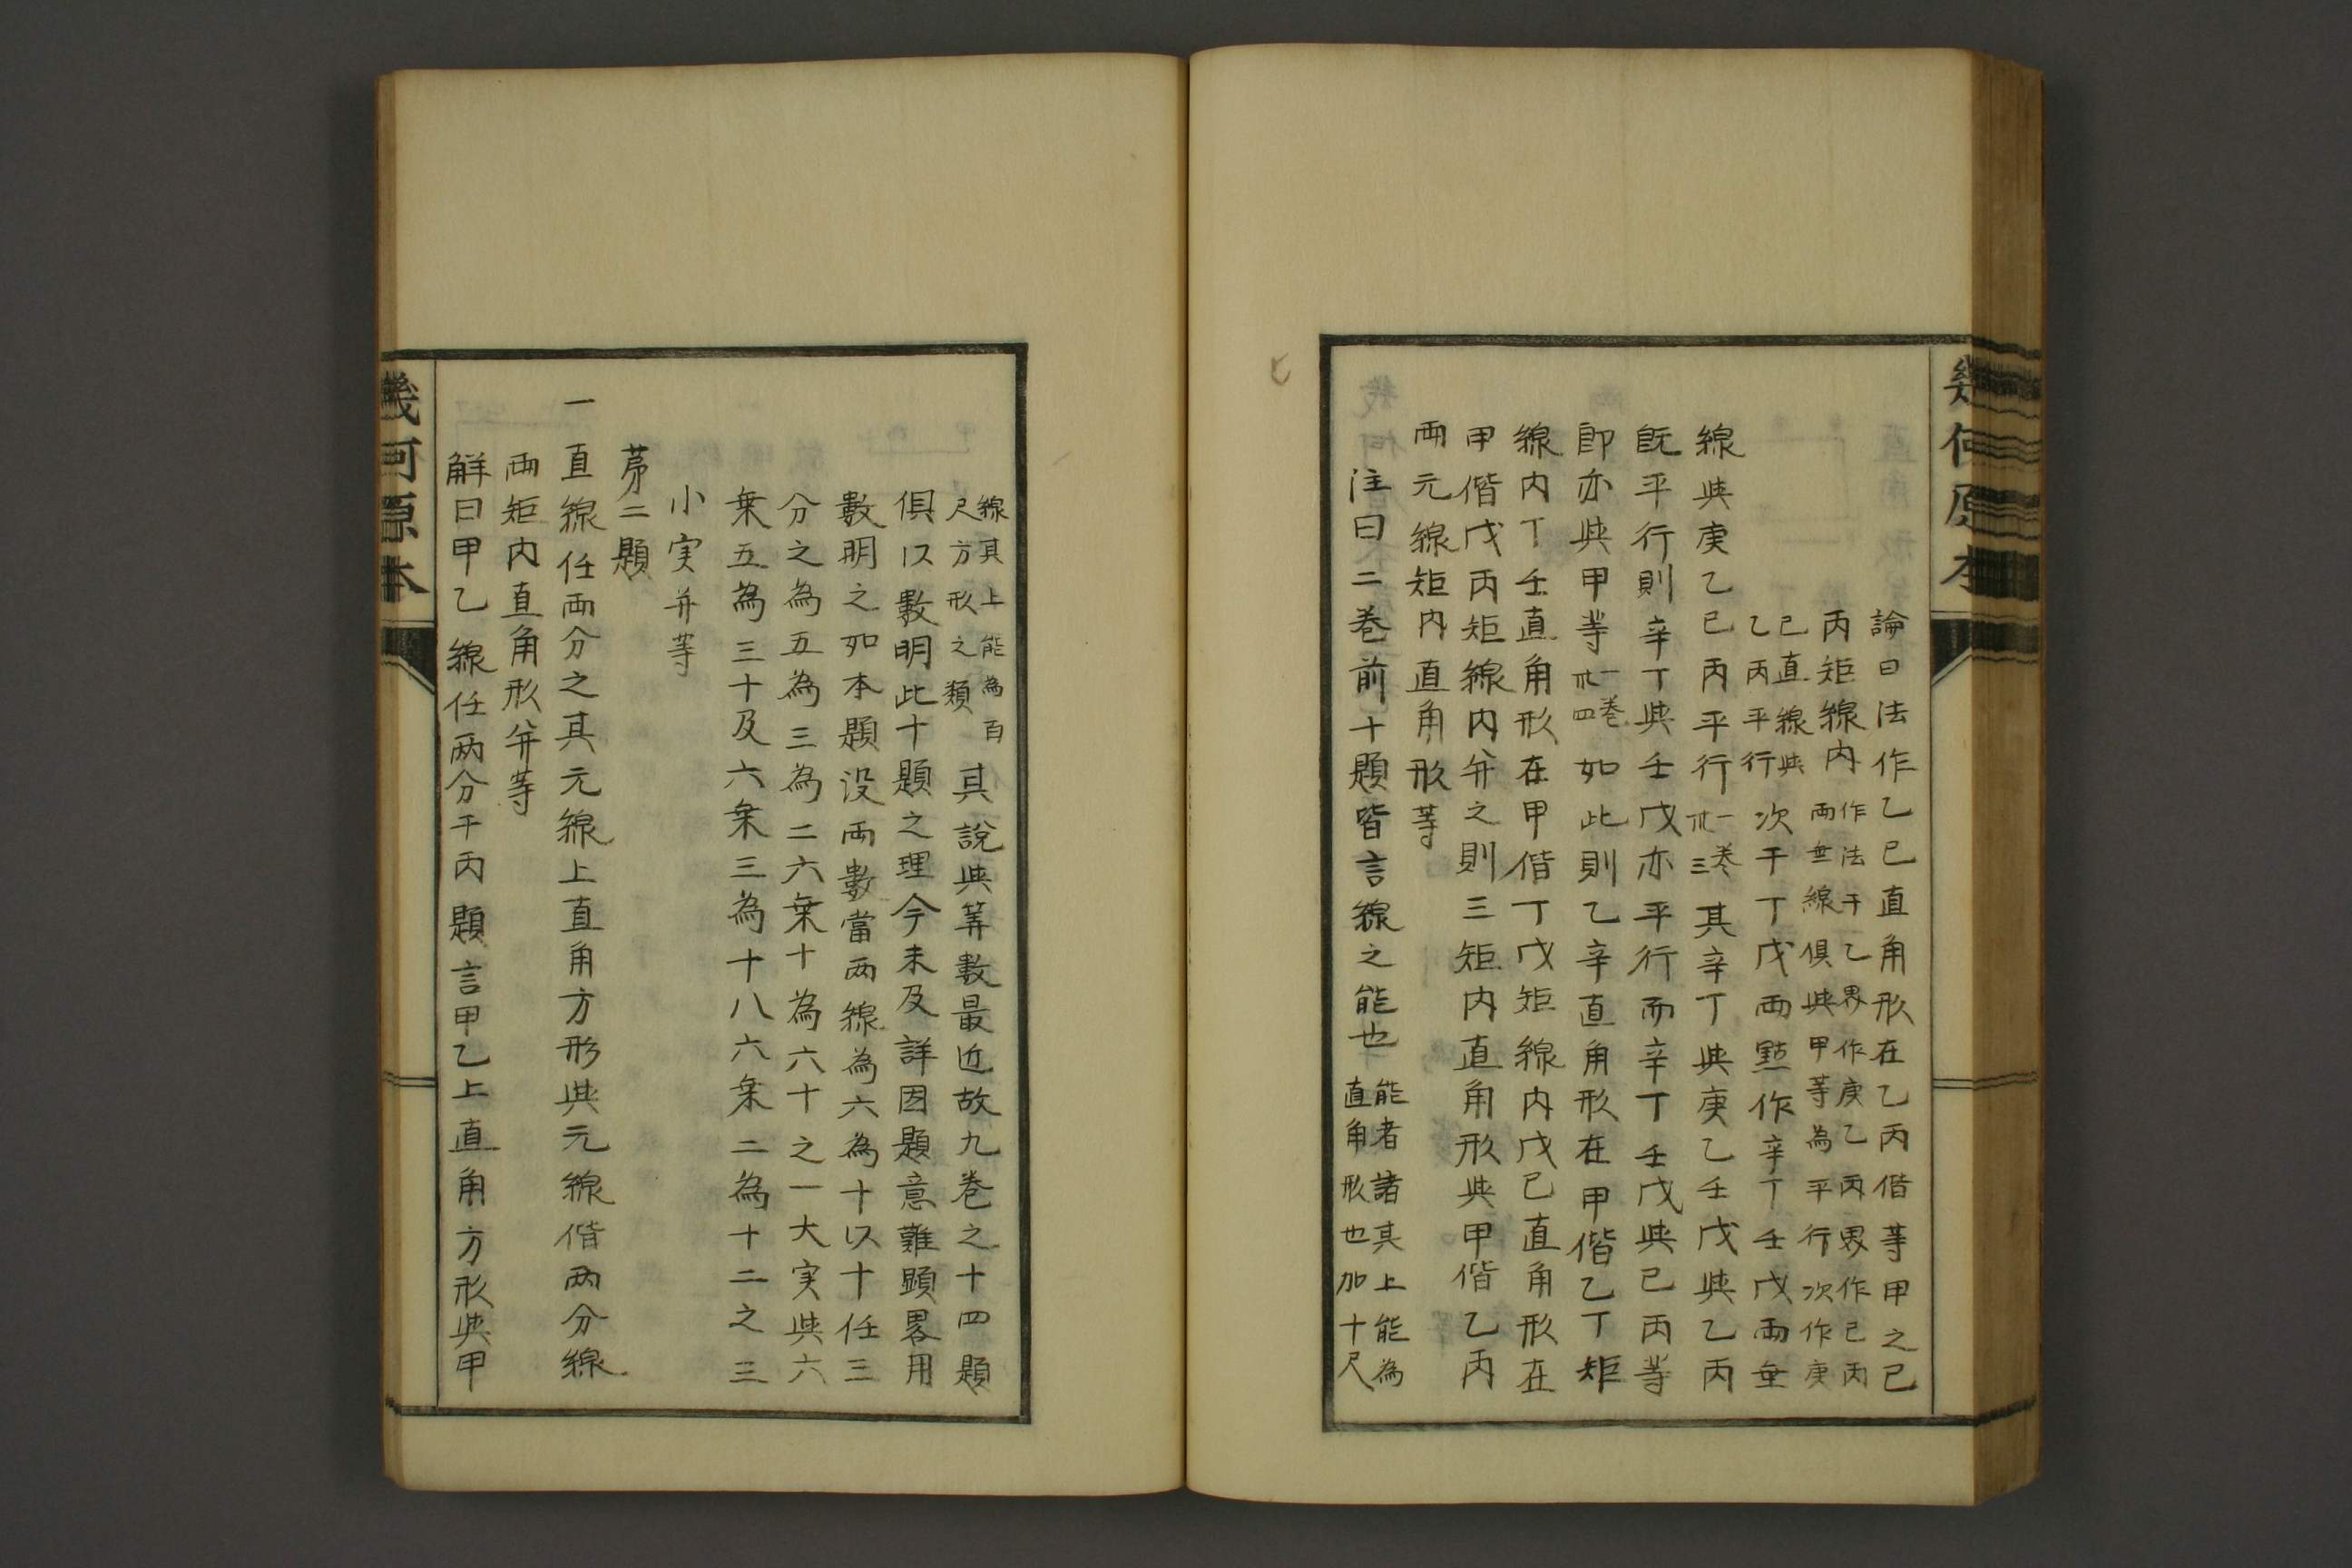 論曰法作乙己直角形在乙丙偕等甲之己
丙矩線内作法于乙界作庚乙丙界作己丙
兩垂線俱與甲等為平行次作庚
己直線與
乙丙平行次于丁戊兩㸃作辛丁壬戊兩垂
線與庚乙己丙平行一卷卅三其辛丁與庚乙壬戊與乙丙
既平行則辛丁與壬戊亦平行而辛丁壬戊與己丙等
即亦與甲等一卷卅四如此則乙辛直角形在甲偕乙丁矩
線内丁壬直角形在甲偕丁戊矩線内戊己直角形在
甲偕戊丙矩線内并之則三矩内直角形與甲偕乙丙
兩元線矩内直角形等
注曰二巻前十題皆言線之能也能者諸其上能為
直角形也加十尺
線其上能為百
尺方形之類其說與筭數最近故九巻之十四題
俱以數明此十題之理今未及詳因題意難顕畧用
數明之如本題没兩數當两線為六為十以十任三
分之為五為三為二六乗十為六十之一大実與六
乗五為三十及六乗三為十八六乗二為十二之三
小実并等
苐二題
一直線任兩分之其元線上直角方形與元線偕兩分線
兩矩内直角形并等
解曰甲乙線任两分于丙題言甲乙上直角方形與甲
幾何原本
幾何原本